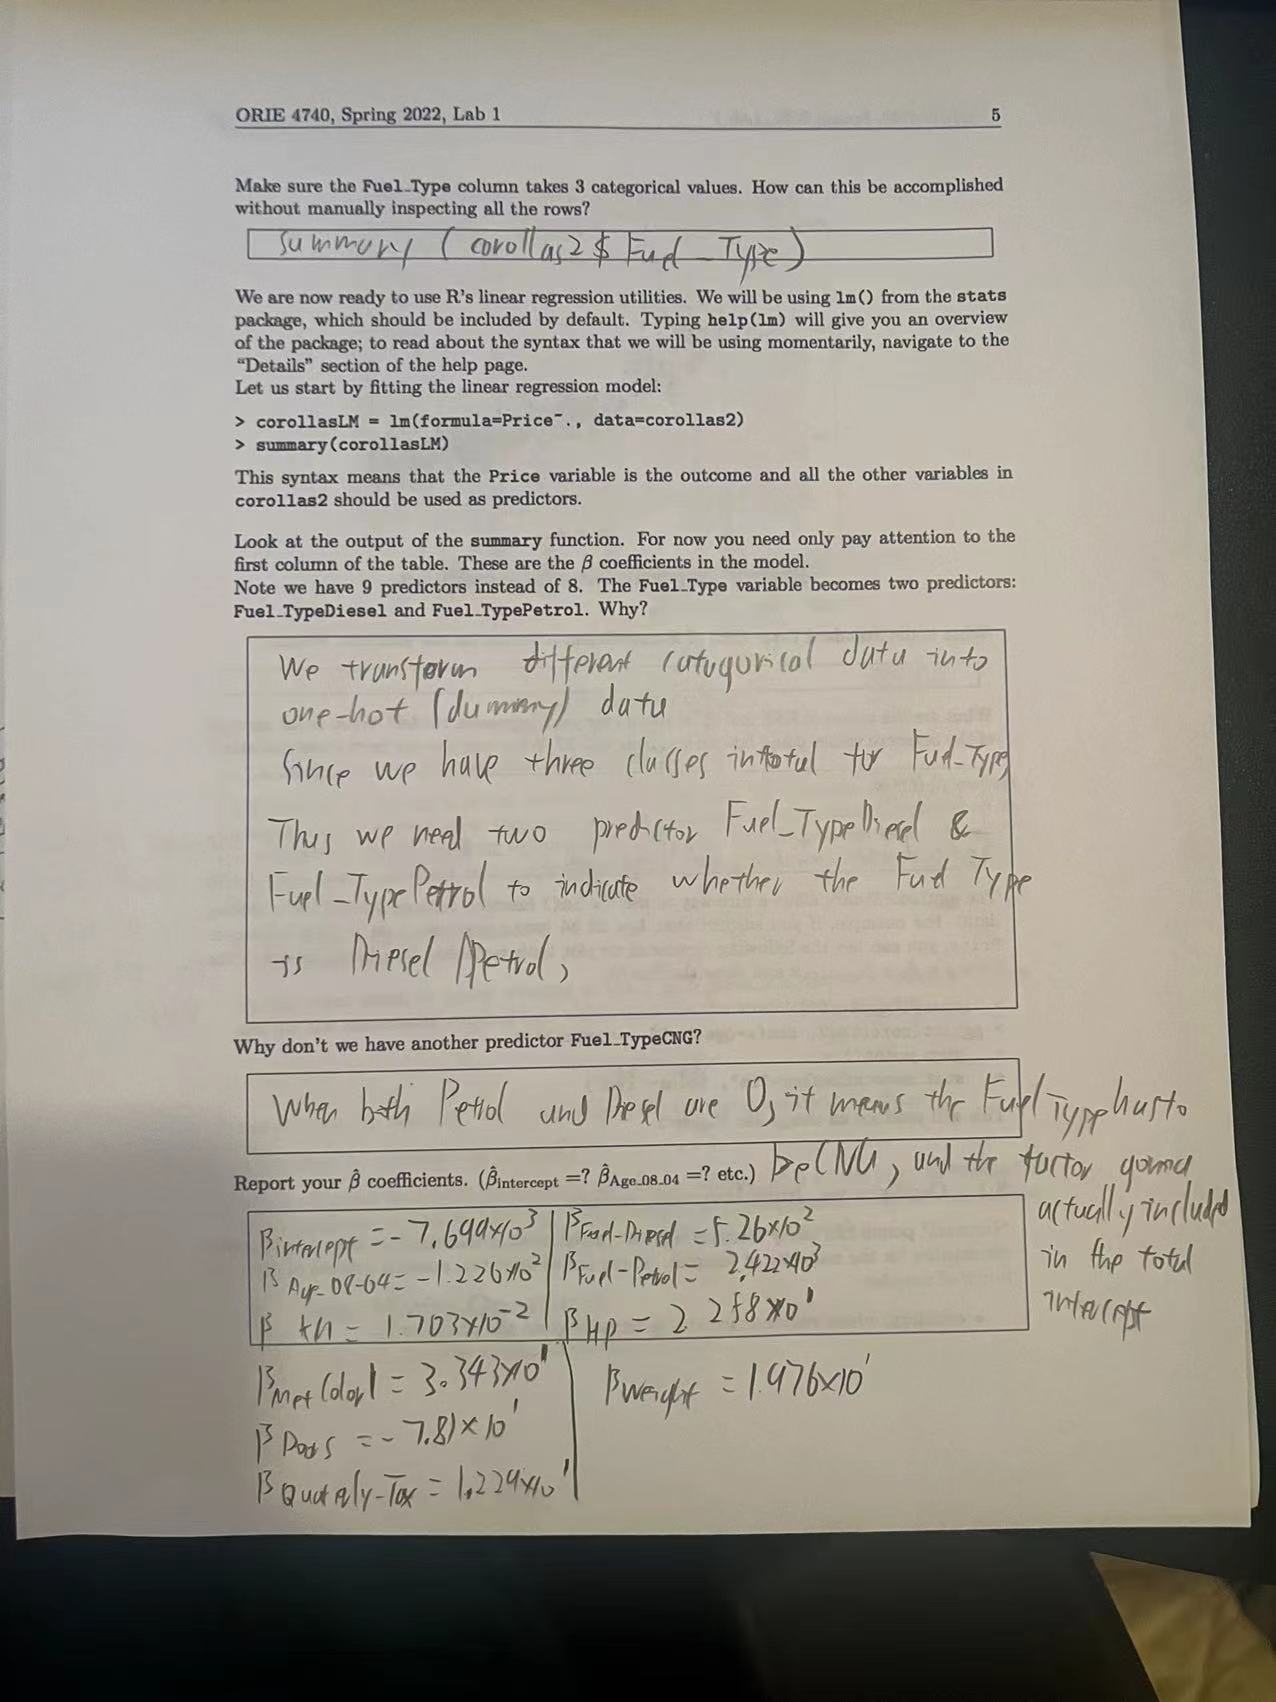 ORIE 4740, Spring 2022, Lab 1 5
Make sure the Fuel_Type column takes 3 categorical values. How can this be accomplished
without manually inspecting all the rows?
Summary (corollas2$ Fuel_Type)
We are now ready to use R's linear regression utilities. We will be using lm() from the stats
package, which should be included by default. Typing help(lm) will give you an overview
of the package; to read about the syntax that we will be using momentarily, navigate to the
“Details” section of the help page.
Let us start by fitting the linear regression model:
> corollasLM = lm(formula=Price~., data=corollas2)
> summary(corollasLM)
This syntax means that the Price variable is the outcome and all the other variables in
corollas2 should be used as predictors.
Look at the output of the summary function. For now you need only pay attention to the
first column of the table. These are the β coefficients in the model.
Note we have 9 predictors instead of 8. The Fuel_Type variable becomes two predictors:
Fuel_TypeDiesel and Fuel_TypePetrol. Why?
We transform different categorical data into
one-hot (dummy) data
Since we have three classes in total for Fuel_Type,
Thus we need two predictor Fuel_TypeDiesel &
Fuel_TypePetrol to indicate whether the Fuel Type
is Diesel / Petrol,
Why don't we have another predictor Fuel_TypeCNG?
When both Petrol and Diesel are 0, it means the Fuel Type has to
be CNG, and the factor gonna
actually included
in the total
intercept
Report your β̂ coefficients. (β̂intercept =? β̂Age_08_04 =? etc.)
βintercept = -7.699×10³ βFuel-Diesel = 5.26×10²
βAge-08-04 = -1.226×10² βFuel-Petrol = 2.422×10³
β = 1.703×10⁻² βHP = 2 258×10¹
βMet Color1 = 3.343×10¹ βweight = 1.976×10¹
βDoors = -7.81×10¹
βQuartely-Tax = 1.224×10¹